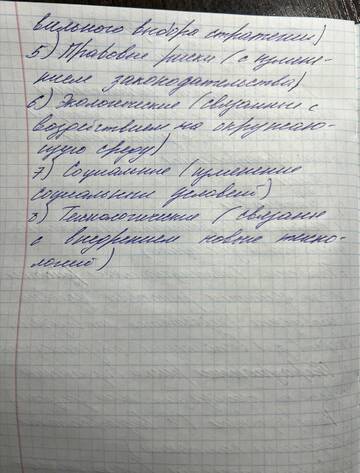 вильного выбора стратегии)
5) Правовые риски (с измене-
нием законодательства)
6) Экологические (связанные с
воздействием на окружаю-
щую среду)
7) Социальные (изменение
социальных условий)
8) Технологические (связаны
с внедрением новых техно-
логий)